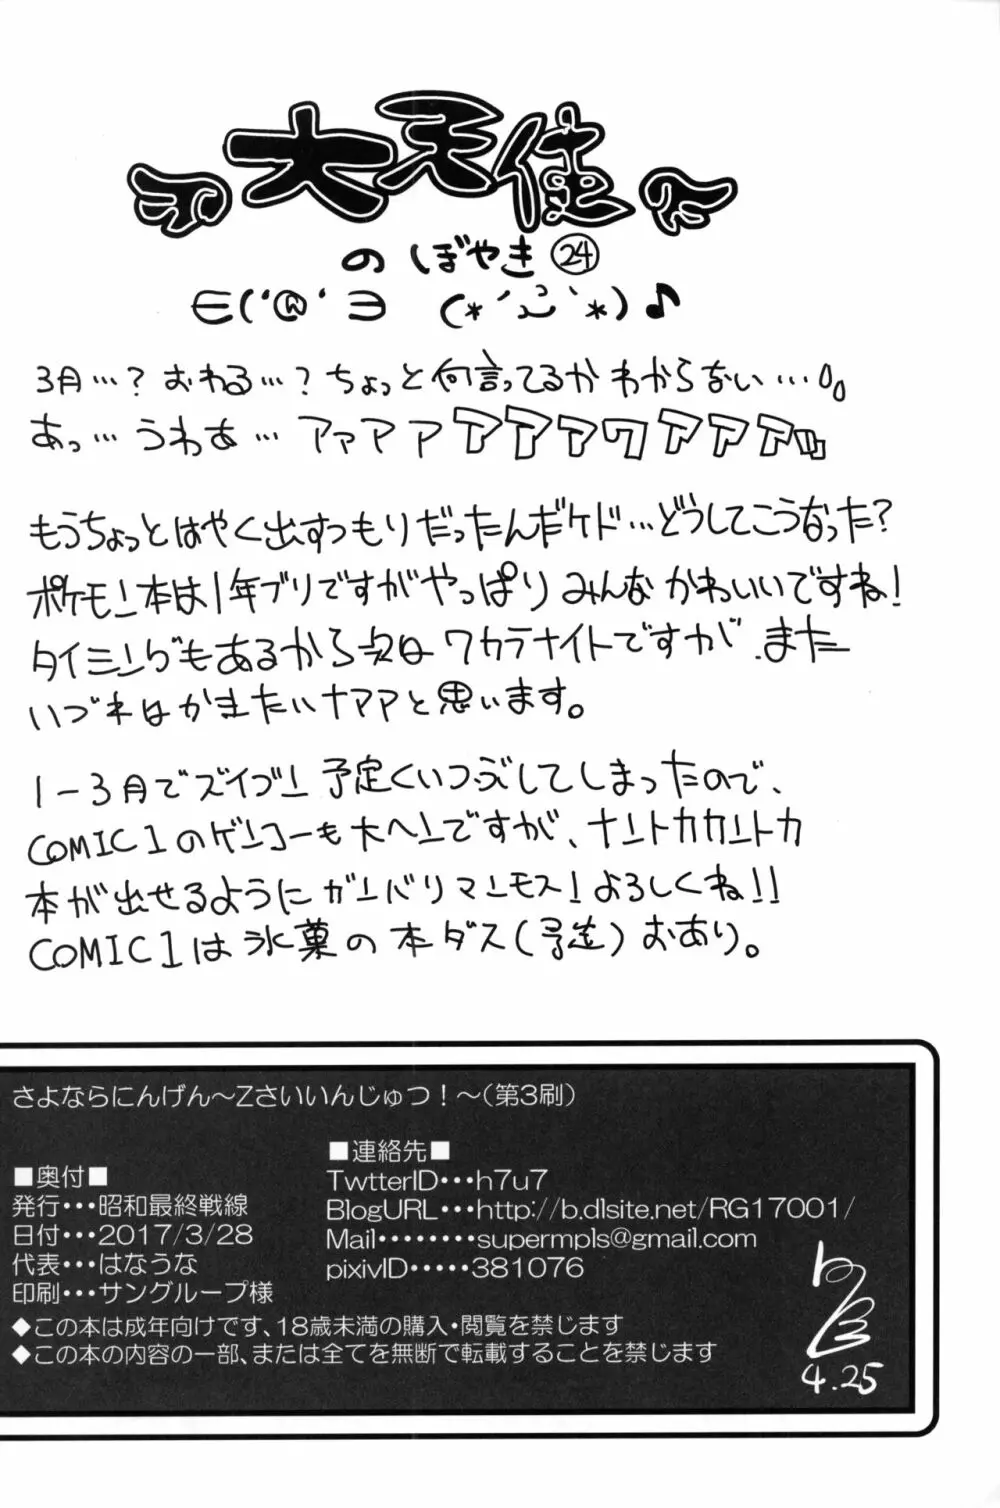 大天使
のぼやき㉔
∈('@'∋ (*´ω`*)♪
3月…？おわる…？ちょっと何言ってるかわからない…
あっ…うわぁ…アァアアアアァワアアアッ
もうちょっとはやく出すつもりだったんだケド…どうしてこうなった？
ポケモン本は1年ブリですがやっぱりみんなかわいいですね！
タイミングもあるから次はワカラナイトですが、また
いづれはかきたいナアアと思います。
1−3月でズイブン予定くいつぶしてしまったので、
COMIC1のゲンコーも大ヘンですが、ナントカカントカ
本が出せるようにガンバリマンモス！よろしくね!!
COMIC1は氷菓の本ダス(予定)おあり。
さよならにんげん～Zさいいんじゅつ！～(第3刷)
■奥付■
発行・・・昭和最終戦線
日付・・・2017/3/28
代表・・・はなうな
印刷・・・サングループ様
■連絡先■
TwtterID・・・h7u7
BlogURL・・・http://b.dlsite.net/RG17001/
Mail・・・・・・・・supermpls@gmail.com
pixivID・・・・・381076
◆この本は成年向けです、18歳未満の購入・閲覧を禁じます
◆この本の内容の一部、または全てを無断で転載することを禁じます
4.25